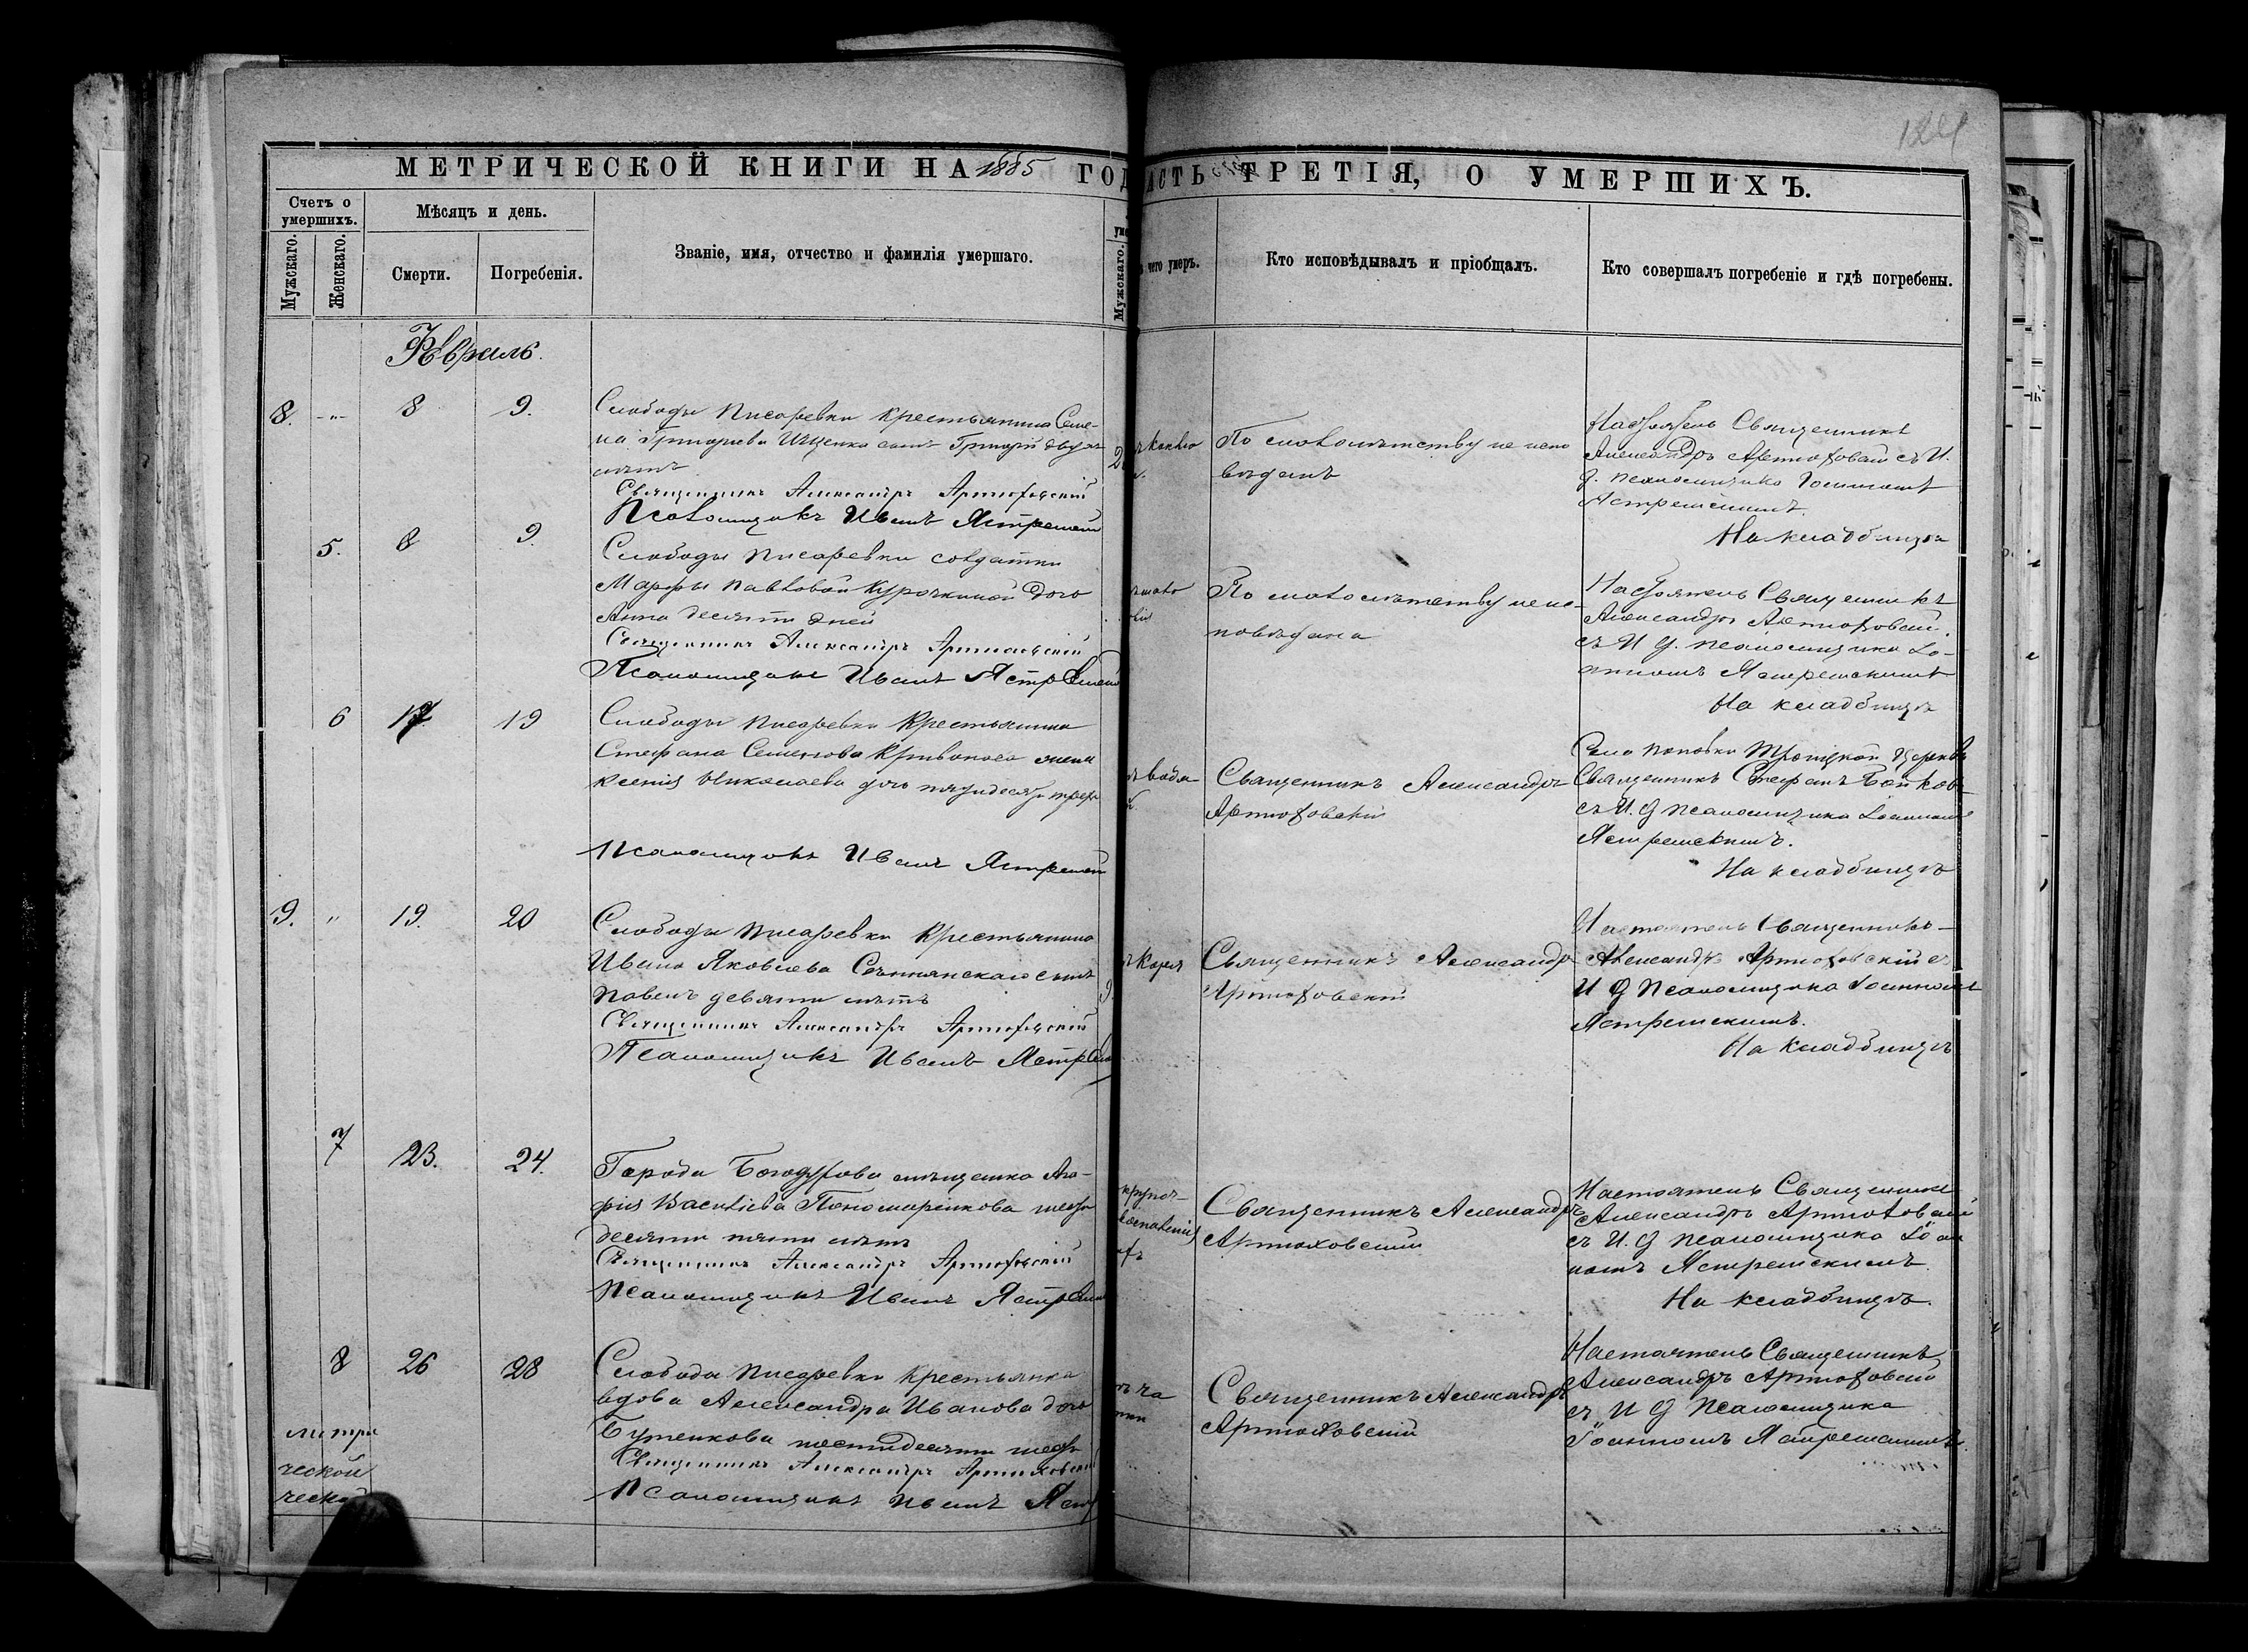 124
МЕТРИЧЕСКОЙ КНИГИ НА 1885 ГОД
АСТЬ ТРЕТІЯ, О УМЕРШИХЪ.
Счетъ о умершихъ.
Мужскаго.
Женскаго.
Мѣсяцъ и день.
Смерти.
Погребенія.
Званіе, имя, отчество и фамилія умершаго.
Мужскаго.
чего умеръ.
Кто исповѣдывалъ и пріобщалъ.
Кто совершалъ погребеніе и гдѣ погребены.
Февраль.
8. " 8 9.
Слободы Писаревки крестьянина Семе-
на Григорьева Ищенка сынъ Григорій двухъ
лѣтъ
Священникъ Александръ Артюховскій
Псаломщикъ Иванъ Ястремскій
По малолѣтству не испо
вѣданъ
Настоятель Священникъ
Александръ Артюховскій съ И.
д. псаломщика Іоанномъ
Ястремскимъ.
На кладбищѣ
5. 8 9.
Слободы Писаревки солдатки
Марфы Павловой Курочкиной дочь
Анна десяти дней
Священникъ Александръ Артюховскій
Псаломщикъ Иванъ Ястремскій
По малолѣтству не ис-
повѣдана
Настоятель Священникъ
Александръ Артюховскій.
съ И д. псаломщика Іо-
анномъ Ястремскимъ
На кладбищѣ
6 17 19
Слободы Писаревки Крестьянина
Стефана Семенова Кривоноса жена
Ксенія Николаева дочь пятидесяти трехъ
Псаломщикъ Иванъ Ястремскій
Священникъ Александръ
Артюховскій
Села Поповки Троицкой Церкви
Священникъ Стефанъ
съ И. д псаломщика Іоанномъ
Ястремскимъ.
На кладбищѣ
9. " 19. 20
Слободы Писаревки Крестьянина
Ивана Яковлева сынъ
Павелъ девяти лѣтъ
Священникъ Александръ Артюховскій
Псаломщикъ Иванъ Ястремскій
Священникъ Александръ
Артюховскій
Настоятель Священникъ
Александръ Артюховскій съ
И д псаломщика Іоанномъ
Ястремскимъ.
На кладбищѣ
7 23. 24.
Города Богодухова мѣщанка Ага-
фія Васильева Пономаренкова шести
десяти пяти лѣтъ
Священникъ Александръ Артюховскій
Псаломщикъ Иванъ Ястремскій
Священникъ Александръ
Артюховскій
Настоятель Священникъ
Александръ Артюховскій
съ И. д псаломщика Іоан
номъ Ястремскимъ.
На кладбищѣ.
8 26 28
Слободы Писаревки Крестьянка
вдова Александра Иванова дочь
шестидесяти шести
Священникъ Александръ Артюховскій
Псаломщикъ Иванъ Яст
Священникъ Александръ
Артюховскій
Настоятель Священникъ
Александръ Артюховскій
съ И д псаломщика
Іоанномъ Ястремскимъ.
метри
ческой
ческой